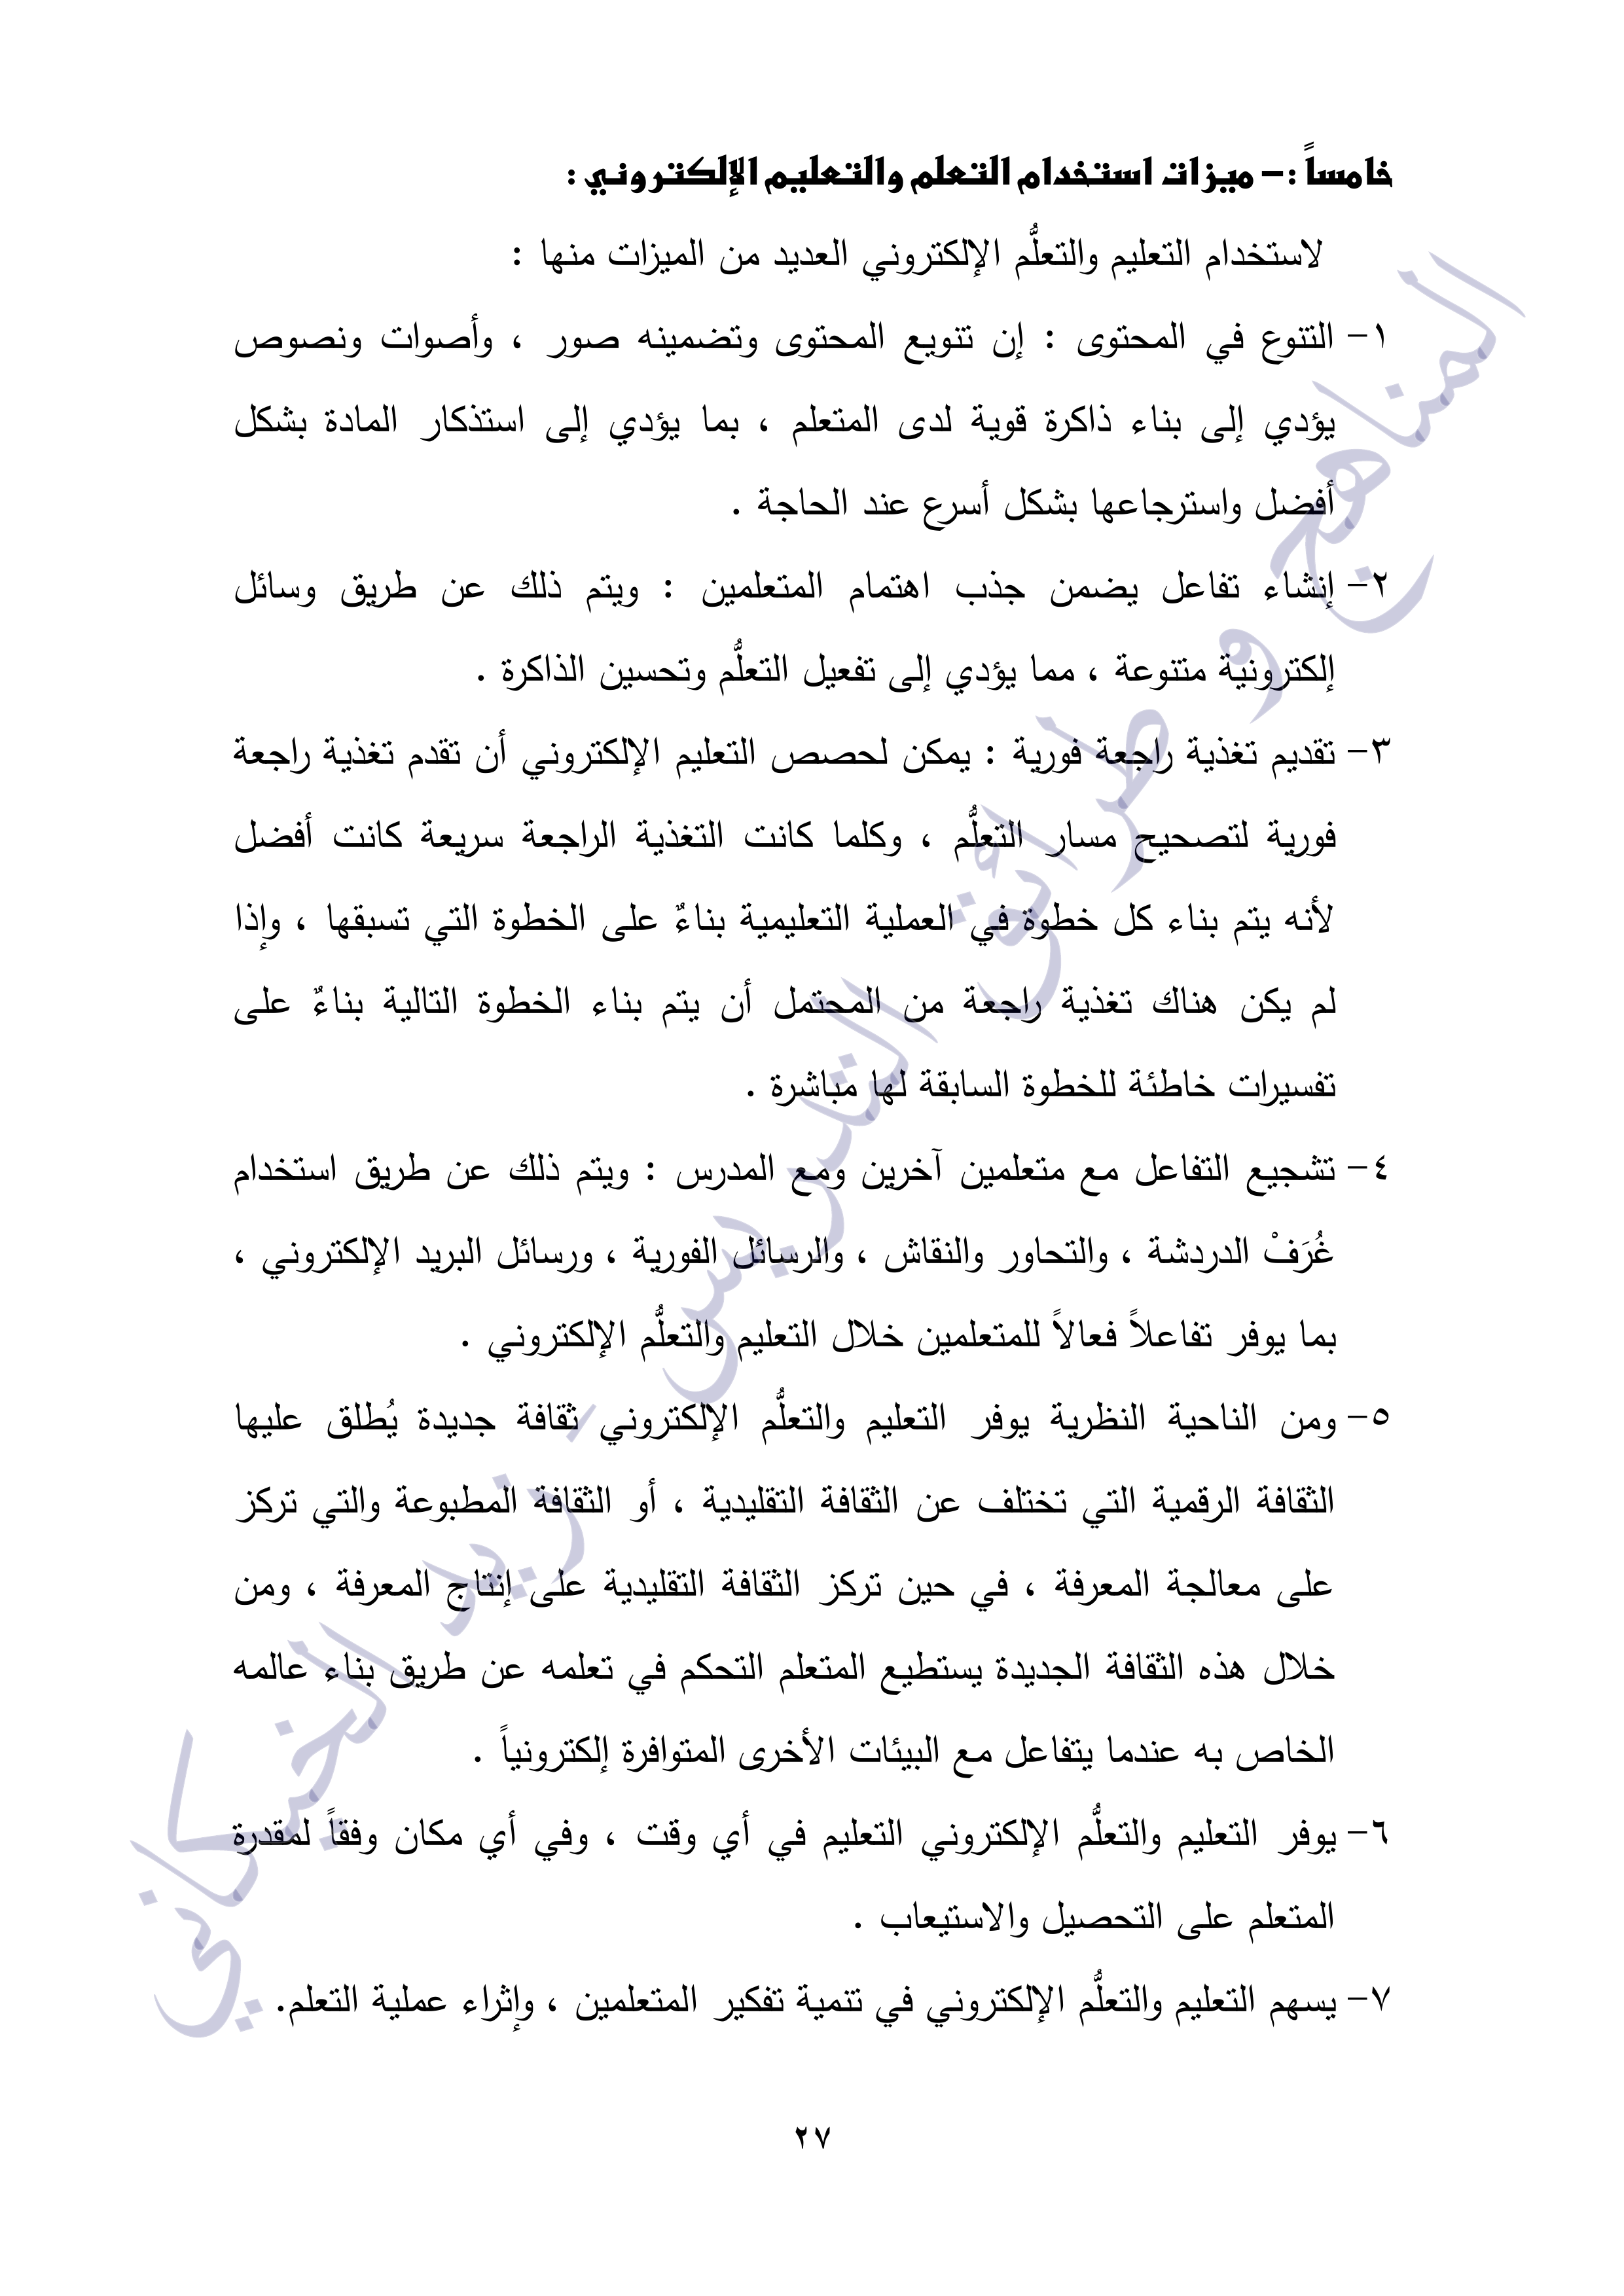 خامساً :– ميزات استخدام التعلم والتعليم الإلكتروني :
لاستخدام التعليم والتعلُّم الإلكتروني العديد من الميزات منها :
١- التنوع في المحتوى : إن تنويع المحتوى وتضمينه صور ، وأصوات ونصوص
يؤدي إلى بناء ذاكرة قوية لدى المتعلم ، بما يؤدي إلى استذكار المادة بشكل
أفضل واسترجاعها بشكل أسرع عند الحاجة .
٢- إنشاء تفاعل يضمن جذب اهتمام المتعلمين : ويتم ذلك عن طريق وسائل
إلكترونية متنوعة ، مما يؤدي إلى تفعيل التعلُّم وتحسين الذاكرة .
٣- تقديم تغذية راجعة فورية : يمكن لحصص التعليم الإلكتروني أن تقدم تغذية راجعة
فورية لتصحيح مسار التعلُّم ، وكلما كانت التغذية الراجعة سريعة كانت أفضل
لأنه يتم بناء كل خطوة في العملية التعليمية بناءٌ على الخطوة التي تسبقها ، وإذا
لم يكن هناك تغذية راجعة من المحتمل أن يتم بناء الخطوة التالية بناءٌ على
تفسيرات خاطئة للخطوة السابقة لها مباشرة .
٤- تشجيع التفاعل مع متعلمين آخرين ومع المدرس : ويتم ذلك عن طريق استخدام
غُرَفْ الدردشة ، والتحاور والنقاش ، والرسائل الفورية ، ورسائل البريد الإلكتروني ،
بما يوفر تفاعلاً فعالاً للمتعلمين خلال التعليم والتعلُّم الإلكتروني .
٥- ومن الناحية النظرية يوفر التعليم والتعلُّم الإلكتروني ثقافة جديدة يُطلق عليها
الثقافة الرقمية التي تختلف عن الثقافة التقليدية ، أو الثقافة المطبوعة والتي تركز
على معالجة المعرفة ، في حين تركز الثقافة التقليدية على إنتاج المعرفة ، ومن
خلال هذه الثقافة الجديدة يستطيع المتعلم التحكم في تعلمه عن طريق بناء عالمه
الخاص به عندما يتفاعل مع البيئات الأخرى المتوافرة إلكترونياً .
٦- يوفر التعليم والتعلُّم الإلكتروني التعليم في أي وقت ، وفي أي مكان وفقاً لمقدرة
المتعلم على التحصيل والاستيعاب .
٧- يسهم التعليم والتعلُّم الإلكتروني في تنمية تفكير المتعلمين ، وإثراء عملية التعلم.
٢٧
المناهج و طرائق التدريس - زيد الخيكاني